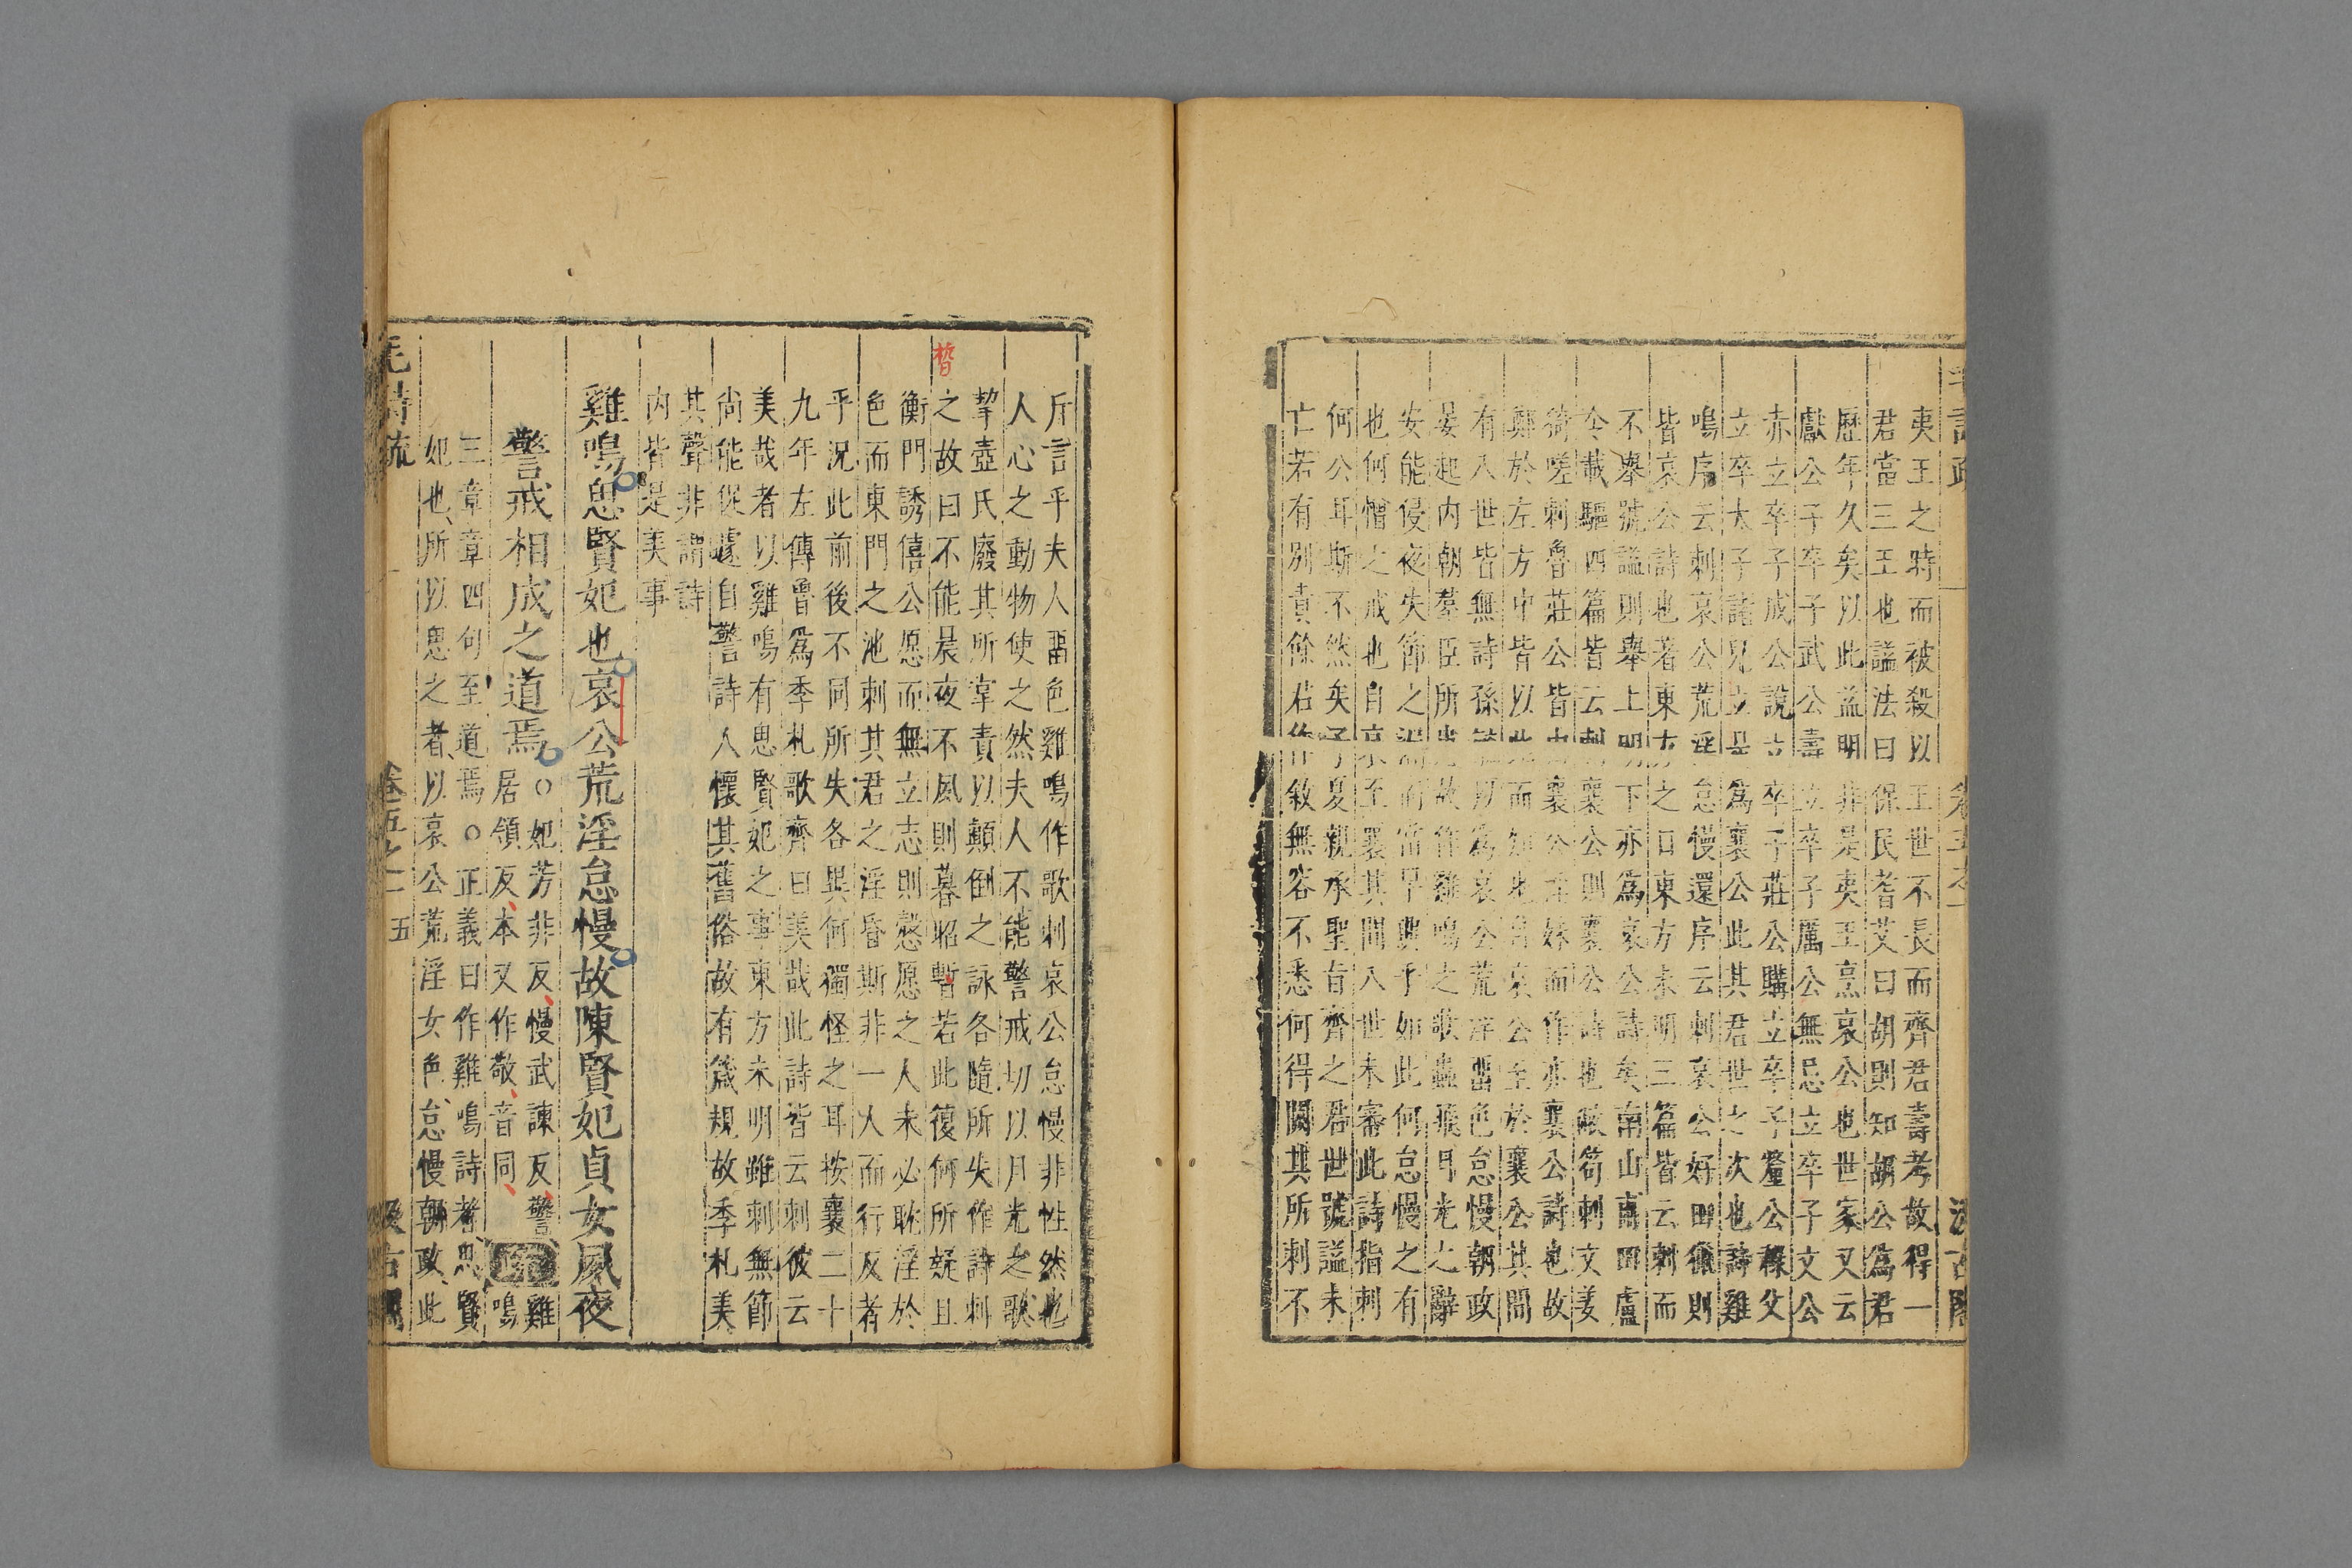 毛詩疏
卷五之一
汲古閣
夷王之時而被殺以王世不長而齊君壽考故得一
君當三王也謚法曰保民耆艾曰胡則知胡公為君
歷年久矣以此益明非是夷王烹哀公也世家又云
獻公子卒子武公壽立卒子厲公無忌立卒子文公
赤立卒子成公說立卒子莊公購立卒子釐公祿父
立卒太子諸兒立是為襄公此其君世之次也詩雞
鳴序云刺哀公荒淫怠慢還序云刺哀公好田獵則
皆哀公詩也著東方之日東方未明三篇皆云刺而
不舉號謚則舉上明下亦為哀公詩矣南山甫田盧
令載驅四篇皆云刺襄公則襄公詩也敝笱刺文姜
猗嗟刺魯莊公皆由襄公淫妹而作亦襄公詩也故
鄭於左方中皆以此而知也自哀公至於襄公其間
有八世皆無詩孫毓以為哀公荒淫畱色怠慢朝政
晏起內朝羣臣所患故作雞鳴之歌蟲飛月光之辭
安能侵夜失節之漏而當早興乎如此何怠慢之有
也何憎之戒也自哀至襄其間八世未審此詩指刺
何公耳斯不然矣子夏親承聖旨齊之君世號謚未
亡若有別責餘君作敘無容不悉何得闕其所刺不
斥言乎夫人畱色雞鳴作歌刺哀公怠慢非性然也
人心之動物使之然夫人不能警戒切以月光之歌
挈壺氏廢其所掌責以顛倒之詠各隨所失作詩刺
之故曰不能晨夜不夙則暮昭暫若此復何所疑且
晳
衡門誘僖公愿而無立志則愨愿之人未必耽淫於
色而東門之池刺其君之淫昏斯非一人而行反者
乎況此前後不同所失各異何獨怪之耳按襄二十
九年左傳魯為季札歌齊曰美哉此詩皆云刺彼云
美哉者以雞鳴有思賢妃之事東方未明雖刺無節
尚能促遽自警詩人懷其舊俗故有箴規故季札美
其聲非謂詩
內皆是美事
雞鳴思賢妃也哀公荒淫怠慢故陳賢妃貞女夙夜
警戒相成之道焉
○妃芳非反慢武諫反警
居領反本又作敬音同
雞鳴
三章章四句至道焉○正義曰作雞鳴詩者思賢
妃也所以思之者以哀公荒淫女色怠慢朝政此
毛詩疏
卷五之一
五
汲古閣